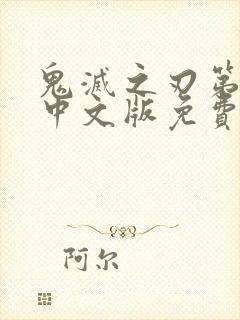 鬼滅之刃第
中文版免費
阿尔